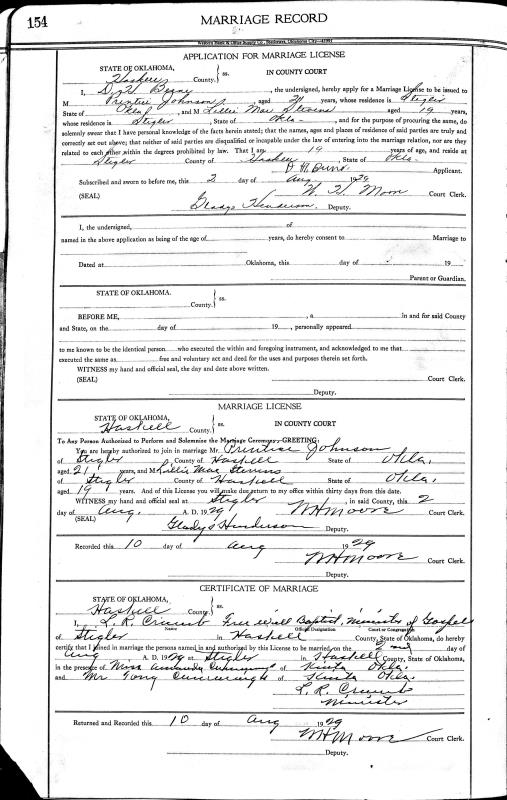 154
MARRIAGE RECORD
APPLICATION FOR MARRIAGE LICENSE
STATE OF OKLAHOMA, } ss. IN COUNTY COURT
Haskell County.
I, , the undersigned, hereby apply for a Marriage License to be issued to
M Prentice Johnson, aged 21 years, whose residence is Stigler
State of Okla, and M Lillie Mae Stevens aged 19 years,
whose residence is Stigler, State of Okla, and for the purpose of procuring the same, do
solemnly swear that I have personal knowledge of the facts herein stated; that the names, ages and places of residence of said parties are truly and
correctly set out above; that neither of said parties are disqualified or incapable under the law of entering into the marriage relation, nor are they
related to each other within the degrees prohibited by law. That I am 19 years of age, and reside at
Stigler County of Haskell, State of Okla.
Applicant.
Subscribed and sworn to before me, this 2 day of Aug 1929
(SEAL) W. H. Moore Court Clerk.
Gladys Henderson. Deputy.
I, the undersigned, of
named in the above application as being of the age of years, do hereby consent to Marriage to
Dated at Oklahoma, this day of 19
Parent or Guardian.
STATE OF OKLAHOMA. } ss.
County.
BEFORE ME, , a in and for said County
and State, on the day of 19 , personally appeared
to me known to be the identical person who executed the within and foregoing instrument, and acknowledged to me that
executed the same as free and voluntary act and deed for the uses and purposes therein set forth.
WITNESS my hand and official seal, the day and date above written.
(SEAL) Court Clerk.
Deputy.
MARRIAGE LICENSE
STATE OF OKLAHOMA, } ss. IN COUNTY COURT
Haskell County.
To Any Person Authorized to Perform and Solemnize the Marriage Ceremony, GREETING:
You are hereby authorized to join in marriage Mr. Prentice Johnson
of Stigler County of Haskell State of Okla.
aged 21 years, and M Lillie Mae Stevens
of Stigler County of Haskell State of Okla.
aged 19 years. And of this License you will make due return to my office within thirty days from this date.
WITNESS my hand and official seal at Stigler, in said County, this 2
day of Aug. A. D. 1929 WH Moore Court Clerk.
(SEAL) Gladys Henderson Deputy.
Recorded this 10 day of Aug 1929
WH Moore Court Clerk.
Deputy.
CERTIFICATE OF MARRIAGE
STATE OF OKLAHOMA, } ss.
Haskell County.
I, L. R. Crumb Free Will Baptist, Minister of Gospel
Name Official Designation Court or Congregation
of Stigler in Haskell County, State of Oklahoma, do hereby
certify that I joined in marriage the persons named in and authorized by this License to be married on the 2nd day of
Aug A. D. 1929 in Stigler in Haskell County, State of Oklahoma,
in the presence of Miss of Kinta Okla.
and Mr of Kinta Okla.
L. R. Crumb
Minister
Returned and Recorded this 10 day of Aug 1929
WH Moore Court Clerk.
Deputy.